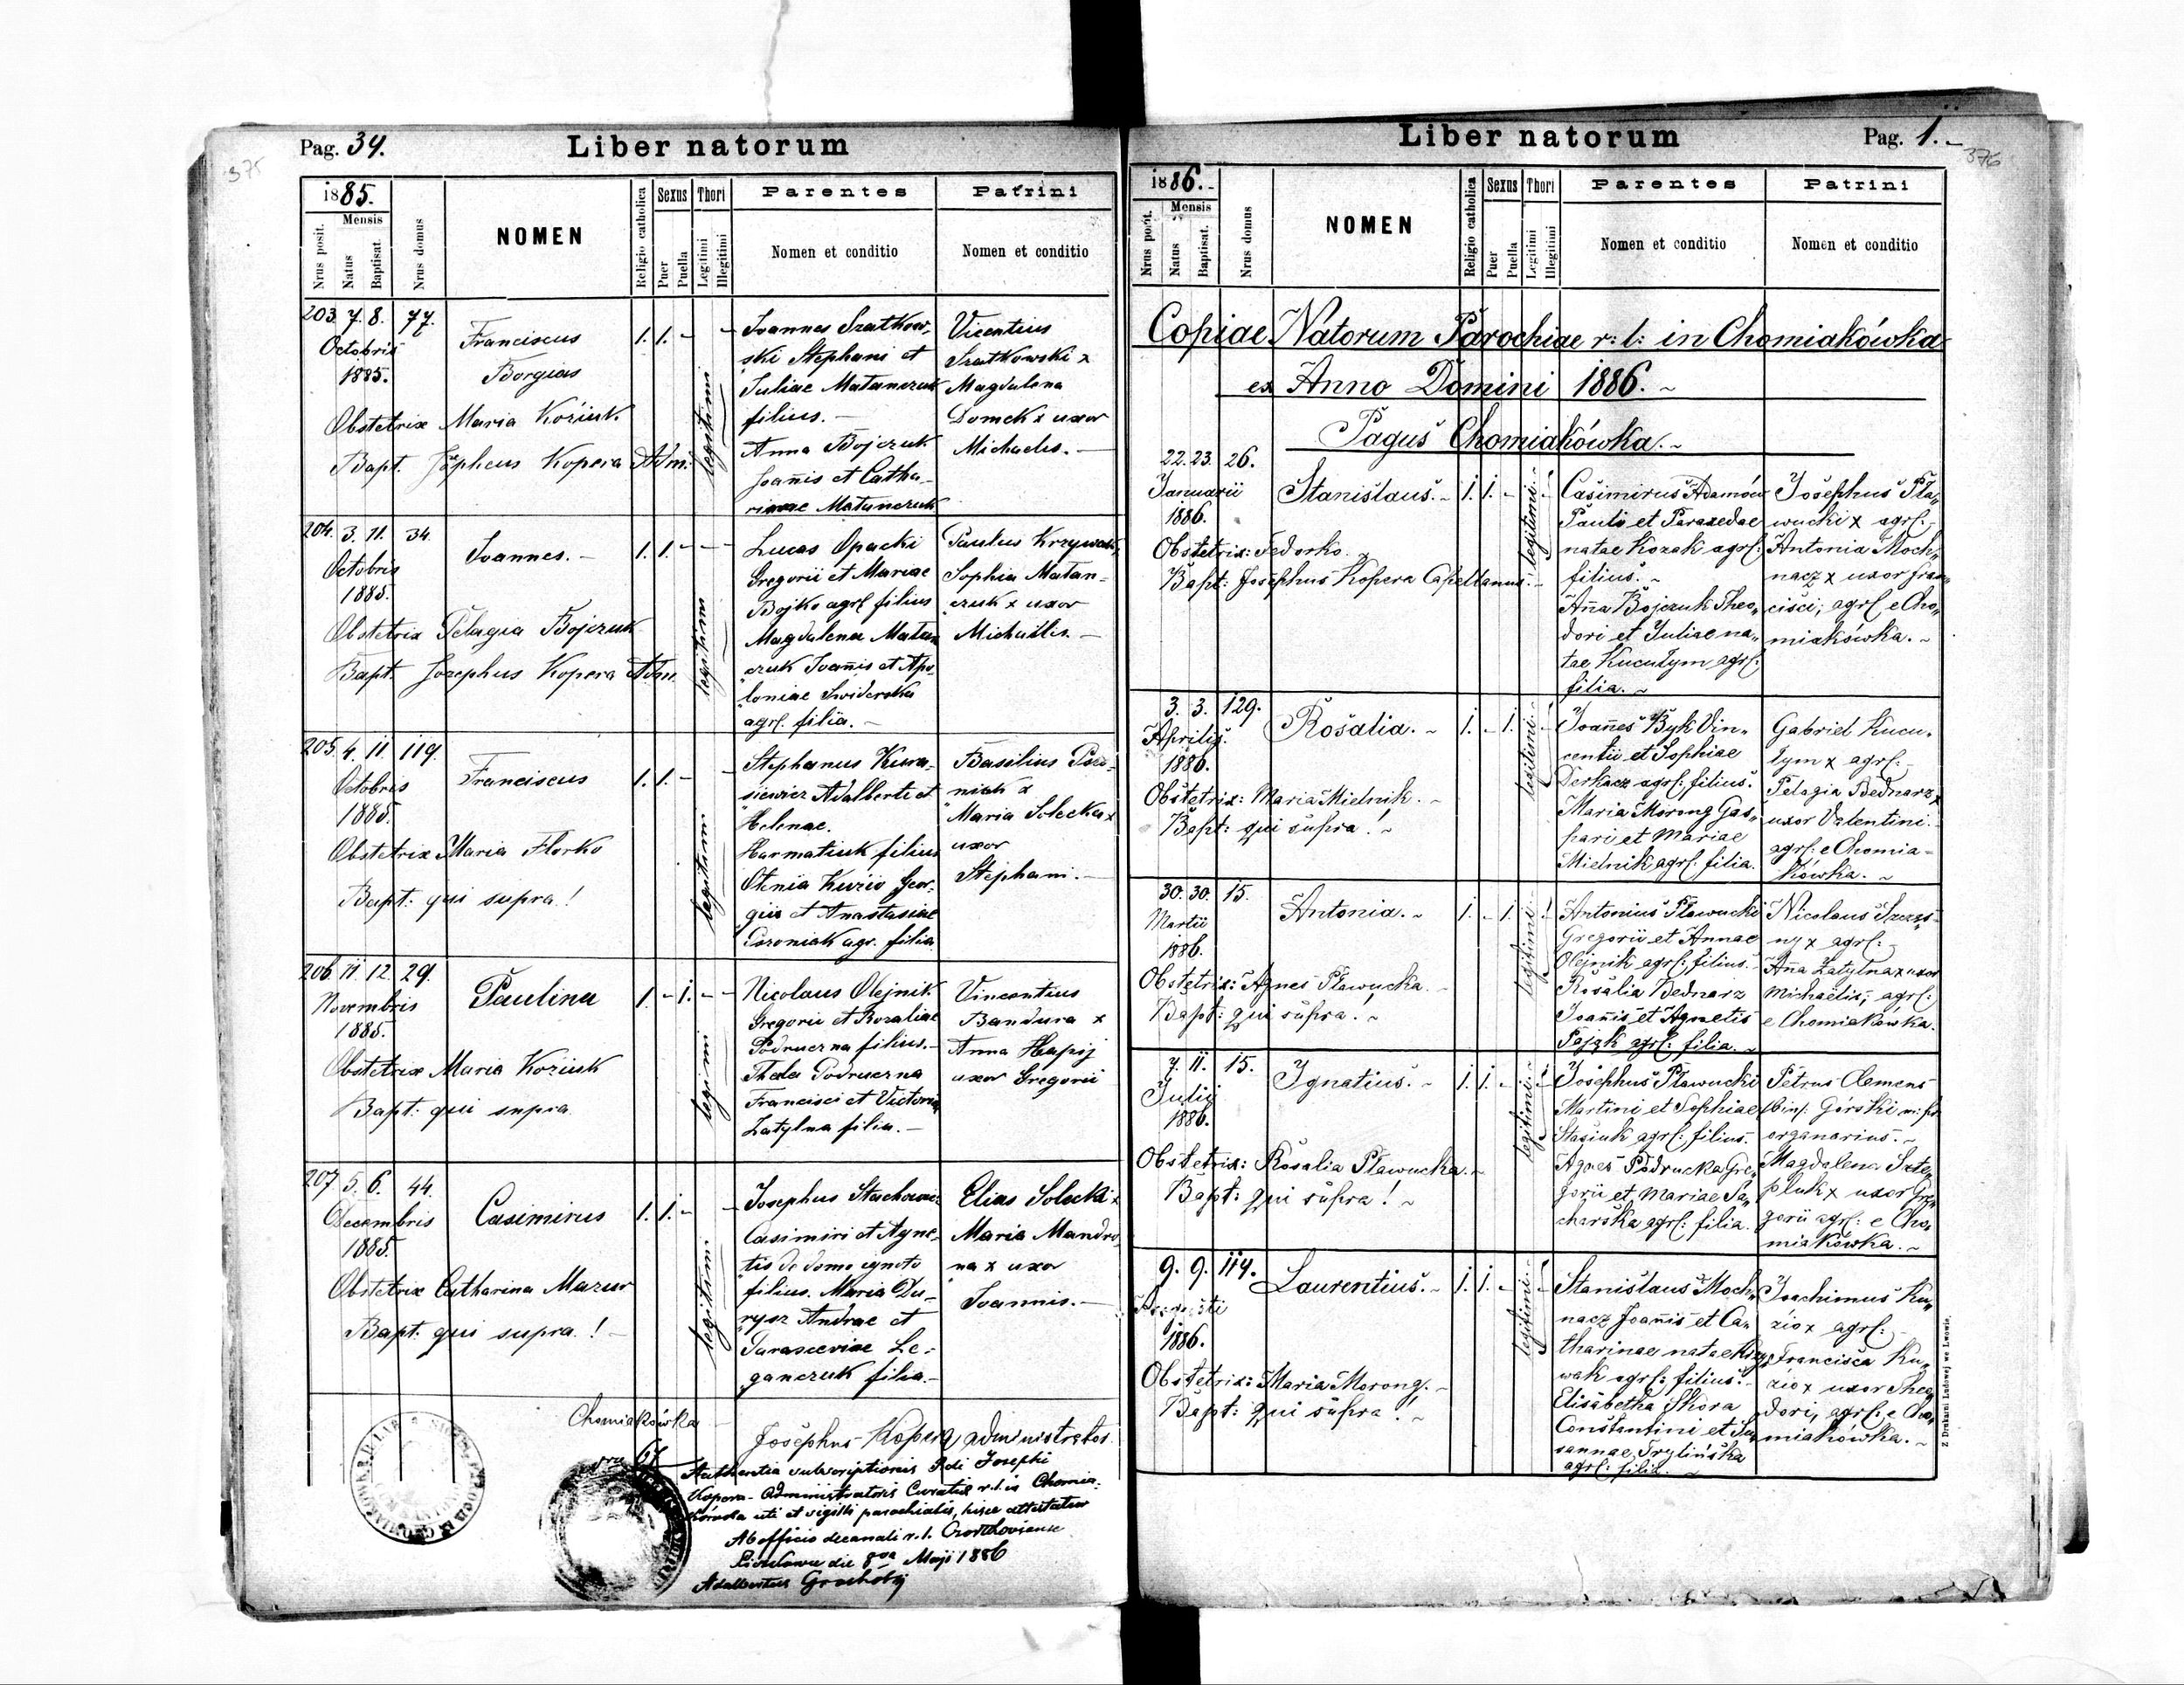 375
Pag. 34.
Liber natorum
1885.
Mensis
Nrus posit.
Natus
Baptisat.
Nrus domus
NOMEN
Religio catholica
Sexus
Puer
Puella
Thori
Legitimi
Illegitimi
Parentes
Nomen et conditio
Patrini
Nomen et conditio
203. 7. 8. 77.
Octobris
1885.
Franciscus
Borgias
1. 1. - -
legitimi
Obstetrix Maria Koziuk
Bapt. Josephus Kopera Adm.
Joannes Szatkow-
ski Stephani et
Juliae Matanczuk
filius. -
Anna Bojczuk
Joannis et Catha-
rinae Matanczuk
Vicentius
Szatkowski x
Magdalena
Domek x uxor
Michaelis. -
204. 3. 11. 34.
Octobris
1885.
Joannes. -
1. 1. - -
legitimi
Obstetrix Pelagia Bojczuk
Bapt. Josephus Kopera Adm.
Lucas Opacki
Gregorii et Mariae
Bojko agr. filius
Magdalena Matan
czuk Joannis et Apo-
loniae Swiderska
agr. filia. -
Paulus
Sophia Matan-
czuk x uxor
Michaëlis. -
205. 4. 11. 119.
Octobris
1885.
Franciscus
1. 1. -
legitimi
Obstetrix Maria Florko
Bapt: qui supra!
Stephanus Kura-
siewicz Adalberti et
Helenae
Harmatiuk filius
Geor-
gii et Anastasiae
Pozoniak agr. filia.
Basilius Pozo-
niak x
Maria Solecka x
uxor
Stephani. -
206. 11. 12. 29.
Novembris
1885.
Paulina
1. - 1. - -
legitimi
Obstetrix Maria Koziuk
Bapt: qui supra
Nicolaus Olejnik
Gregorii et Rozaliae
Podruczna filius. -
Thecla Podruczna
Francisci et Victoria
Zatylna filia. -
Vincentius
Bandura x
Anna Hapij
uxor Gregorii
207. 5. 6. 44.
Decembris
1885.
Casimirus
1. 1. - -
legitimi
Obstetrix Catharina Mazur
Bapt: qui supra! -
Josephus Stachowicz
Casimiri et Agne-
tis de domo ignoto
filius. Maria Du-
rysz Andrae et
Parasceviae Le-
ganczuk filia. -
Elias Solecki x
Maria Mandro-
na x uxor
Joannis. -
Chomiakówka
Josephus Kopera administrator.
67
Authentia subscriptionis Rdi Josephi
Kopera - Administratoris Curatiae r. l. in Chomia-
kówka uti et sigilli parochialis, hisce attestatur
Ab officio decanali r. l.
die 8va Maji 1886
Adalbertus
376
Liber natorum
Pag. 1. -
1886. -
Mensis
Nrus posit.
Natus
Baptisat.
Nrus domus
NOMEN
Religio catholica
Sexus
Puer
Puella
Thori
Legitimi
Illegitimi
Parentes
Nomen et conditio
Patrini
Nomen et conditio
Copiae Natorum Parochiae r: l: in Chomiakówka
ex Anno Domini 1886. ~
Pagus Chomiakówka. ~
22. 23. 26.
Januarii
1886.
Stanislaus. ~
1. 1. - -
legitimi
Obstetrix: Fedorko. ~
Bapt: Josephus Kopera Capellanus. -
Casimirus Adamów
Pauli et Paraxedae
natae Kozak agr:
filius. ~
Anna Bojczuk Theo„
dori et Juliae na„
tae Kucułym agr:
filia. ~
Josephus Pła„
wucki x agr: -
Antonia Moch„
nacz x uxor Fran„
cisci, agr: e Cho„
miakówka. ~
3. 3. 129.
Aprilis.
1886.
Rosalia. ~
1. - 1. -
legitimi
Obstetrix: Maria Mielnik. ~
Bapt: qui supra! ~
Joannes Byk Vin„
centii et Sophiae
Derkacz agr: filius.
Maria Morong Gas„
pari et Mariae
Mielnik agr: filia.
Gabriel Kucu„
łym x agr: -
Pelagia Bednarz x
uxor Valentini. -
agr: e Chomia-
kówka. ~
30. 30. 15.
Martii
1886.
Antonia. ~
1. - 1. -
legitimi
Obstetrix: Agnes Pławucka. -
Bapt: qui supra! ~
Antonius Pławucki
Gregorii et Annae
Olejnik agr: filius. -
Rosalia Bednarz
Joannis et Agnetis
Pająk agr: filia. ~
Nicolaus Szczęs„
ny x agr: -
Anna Zatylna x uxor
Michaëlis, agr:
e Chomiakówka.
7. 11. 15.
Julij
1886.
Ignatius. ~
1. 1. - -
legitimi
Obstetrix: Rosalia Pławucka. ~
Bapt: qui supra! ~
Josephus Pławucki
Martini et Sophiae
Stasiuk agr: filius. -
Agnes Podrucka Gre„
gorii et Mariae Pa„
charska agr: filia.
Petrus Clemens
Górski
organarius. ~
Magdalena Szte„
pluk x uxor Gre„
gorii agr: e Cho„
miakówka. ~
9. 9. 114.
Augusti
1886.
Laurentius. ~
1. 1. - -
legitimi
Obstetrix: Maria Morong. ~
Bapt: qui supra! ~
Stanislaus Moch„
nacz Joannis et Ca„
tharinae natae
agr: filius. -
Elisabetha Skóra
Constantini et Su„
sannae Trylińska
agr: filia. ~
Joachimus Ku„
zio x agr: -
Francisca Ku„
zio x uxor Theo„
dori, agr: e Cho„
miakówka. ~
Z Drukarni Ludowej we Lwowie.